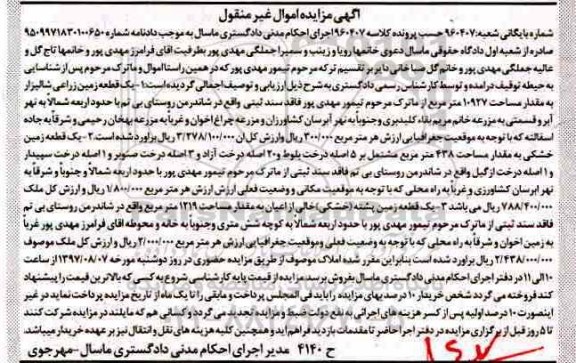 آگهی مزایده اموال غیر منقول
شماره بایگانی شعبه: ۹۶۰۴۰۷ حسب پرونده کلاسه ۹۶۰۴۰۷ اجرای احکام مدنی دادگستری ماسال به موجب دادنامه شماره ۹۵۰۹۹۷۱۸۳۰۱۰۰۶۵۰
صادره از شعبه اول دادگاه حقوقی ماسال دعوی خانمها رویا و زینب و سمیرا جملگی مهدی پور بطرفیت آقای فرامرز مهدی پور و خانمها تاج گل و
عالیه جملگی مهدی پور و خانم گل صفا خانی دایر بر تقسیم ترکه مرحوم تیمور مهدی پور که در همین راستا اموال و ماترک مرحوم پس از شناسایی
به حیطه توقیف درآمده و توسط کارشناس رسمی دادگستری به شرح ذیل ارزیابی و توصیف اجمالی گردیده است: ۱- یک قطعه زمین زراعی شالیزار
به مقدار مساحت ۱۰۹۲۷ متر مربع از ماترک مرحوم تیمور مهدی پور فاقد سند ثبتی واقع در شاندرمن روستای بی تم با حدود اربعه شمالاً به نهر
آبر و قسمتی به مزرعه خانم مریم پناه کلیدبری و جنوباً به نهر آبرسان کشاورزان و مزرعه چراغ اخوان و غرباً به مزرعه بهخان رحیمی و شرقاً به جاده
اسفالته که با توجه به موقعیت جغرافیایی ارزش هر متر مربع ۳۰۰/۰۰۰ ریال و ارزش کل آن ۳/۲۷۸/۱۰۰/۰۰۰ ریال برآورد شده است. ۲- یک قطعه زمین
خشکی به مقدار مساحت ۴۳۸ متر مربع مشتمل بر ۵ اصله درخت بلوط و ۲۰ اصله درخت آزاد و ۳ اصله درخت صنوبر و ۱ اصله درخت سپیدار
و ۱ اصله درخت ازگیل واقع در شاندرمن روستای بی تم فاقد سند ثبتی از ماترک مرحوم تیمور مهدی پور با حدود اربعه شمالاً و جنوباً و شرقاً به
نهر آبرسان کشاورزی و غرباً به راه محلی که با توجه به موقعیت مکانی و وضعیت فعلی ارزش ارزش هر متر مربع ۱/۸۰۰/۰۰۰ ریال و ارزش کل ملک
۷۸۸/۴۰۰/۰۰۰ ریال می باشد ۳- یک قطعه زمین پشته (خشکی) خالی از اعیان به مقدار مساحت ۱۲۱۹ متر مربع واقع در شاندرمن روستای بی تم
فاقد سند ثبتی از ماترک مرحوم تیمور مهدی پور با حدود اربعه شمالاً به کوچه شش متری و جنوباً به خانه و محوطه آقای فرامرز مهدی پور غرباً
به زمین اخوان و شرقاً به راه محلی که با توجه به وضعیت فعلی و موقعیت جغرافیایی ارزش هر متر مربع ۲/۰۰۰/۰۰۰ ریال و ارزش کل ملک موصوف
۲/۴۳۸/۰۰۰/۰۰۰ ریال برآورد شده است بنابراین مقرر شده املاک موصوف از طریق مزایده حضوری در روز دوشنبه مورخه ۱۳۹۷/۰۸/۰۷ از ساعت
۱۰ الی ۱۱ در دفتر اجرای احکام مدنی دادگستری ماسال بفروش برسد مزایده از قیمت پایه کارشناسی شروع به کسی که بالاترین قیمت را پیشنهاد
کند فروخته می گردد شخص خریدار ۱۰ درصد بهای مزایده را باید فی المجلس پرداخت و مابقی را تا یک ماه از تاریخ مزایده پرداخت نماید در غیر
اینصورت ۱۰ درصد اولیه پس از کسر هزینه های اجرائی به نفع دولت ضبط و مزایده تجدید می گردد و کسانی هم که مایلند در مزایده شرکت کنند
تا ۵ روز قبل از برگزاری مزایده در دفتر اجرا حاضر تا مقدمات بازدید فراهم آید و همچنین کلیه هزینه های نقل و انتقال نیز بر عهده خریدار میباشد.
ح ۴۱۴۰ مدیر اجرای احکام مدنی دادگستری ماسال - مهرجوی